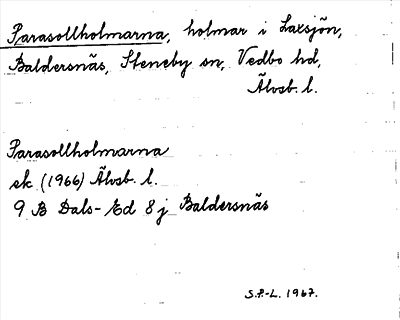 Parasollholmarna, holmar i Laxsjön,
Baldersnäs, Steneby sn, Vedbo hd,
Älvsb. l.
Parasollholmarna
ek (1966) Älvsb. l.
9 B Dals-Ed 8 j Baldersnäs
S.P.-L. 1967.